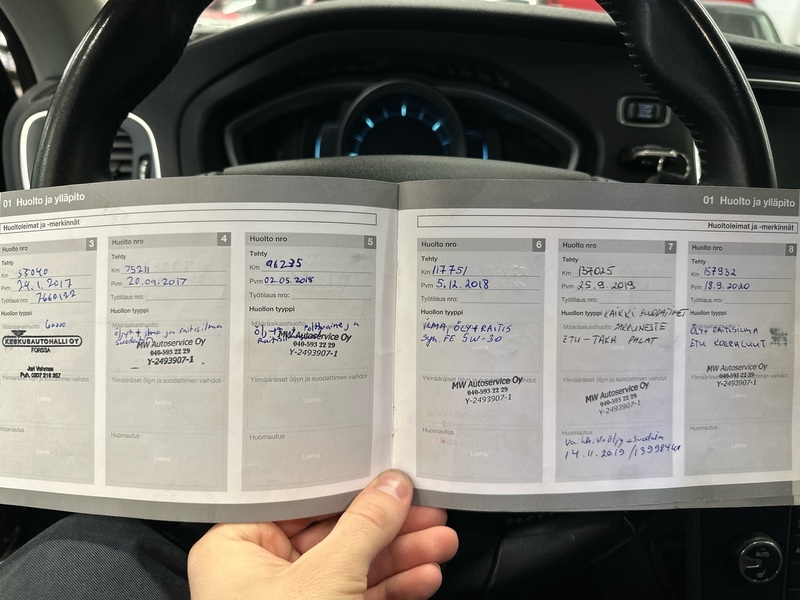 01 Huolto ja ylläpito
Huoltoleimat ja -merkinnät
Huolto nro 3
Tehty
Km 53040
Pvm 24.1.2017
Työtilaus nro: 7660122
Huollon tyyppi
Määräaikaishuolto 60000
KESKUSAUTOHALLI OY
FORSSA
Jari Vehmas
Puh. 0207 216 367
Huomautus
Huolto nro 4
Tehty
Km 75211
Pvm 20.09.2017
Työtilaus nro:
Huollon tyyppi
Määräaikaishuolto
öljyt + ilma ja raitisilman
suodatin
MW Autoservice Oy
040-593 22 29
Y-2493907-1
Ylimääräiset öljyn ja suodattimen vaihdot
Leima
Huomautus
Leima
Huolto nro 5
Tehty
Km 96235
Pvm 02.05.2018
Työtilaus nro:
Huollon tyyppi
polttoaine ja
MW Autoservice Oy
040-593 22 29
Y-2493907-1
Ylimääräiset öljyn ja suodattimen vaihdot
Leima
Huomautus
Leima
01 Huolto ja ylläpito
Huoltoleimat ja -merkinnät
Huolto nro 6
Tehty
Km 117751
Pvm 5.12.2018
Työtilaus nro:
Huollon tyyppi
ILMA, ÖLY + RAITIS
Syn. FE 5W-30
Ylimääräiset öljyn ja suodattimen vaihdot
MW Autoservice Oy
040-593 22 29
Y-2493907-1
Huomautus
Leima
Huolto nro 7
Tehty
Km 137025
Pvm 25.9.2019
Työtilaus nro:
Huollon tyyppi KAIKKI SUODATTIMET
Määräaikaishuolto JARRUNESTE
ETU-TAKA PALAT
Ylimääräiset öljyn ja suodattimen vaihdot
MW Autoservice Oy
040-593 22 29
Y-2493907-1
Huomautus
Vaihteistoöljy + Suodatin
14.11.2019 / 139984km
Huolto nro 8
Tehty
Km 157932
Pvm 18.9.2020
Työtilaus nro:
Huollon tyyppi
Määräaikaishuolto
ÖLJY RAITISILMA
ETU KOIRALUUT
MW Autoservice Oy
040-593 22 29
Y-2493907-1
Huomautus
Leima
AUTO